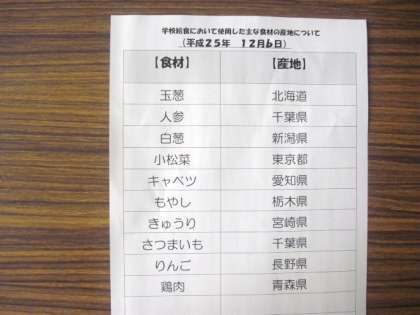 学校給食において使用した主な食材の産地について
（平成25年　12月6日）
【食材】　【産地】
玉葱　北海道
人参　千葉県
白葱　新潟県
小松菜　東京都
キャベツ　愛知県
もやし　栃木県
きゅうり　宮崎県
さつまいも　千葉県
りんご　長野県
鶏肉　青森県